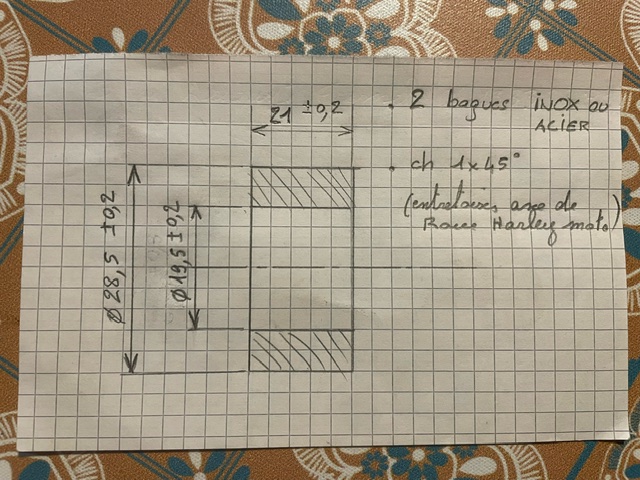 21 ±0,2
. 2 bagues INOX ou
ACIER
. ch 1x45°
(entretoises axe de
Roue Harley moto)
Ø28,5 ±0,2
Ø19,5±0,2